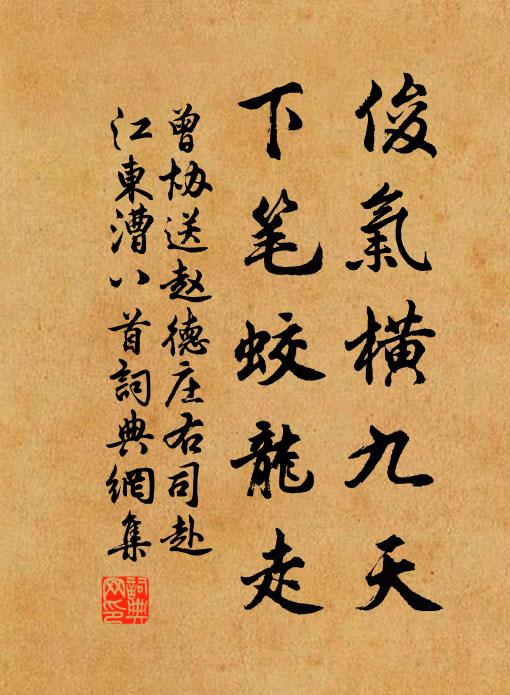 俊氣橫九天
下笔蛟龍走
曾协送赵德庄右司赴
江東漕八首詞典網集
詞典網印